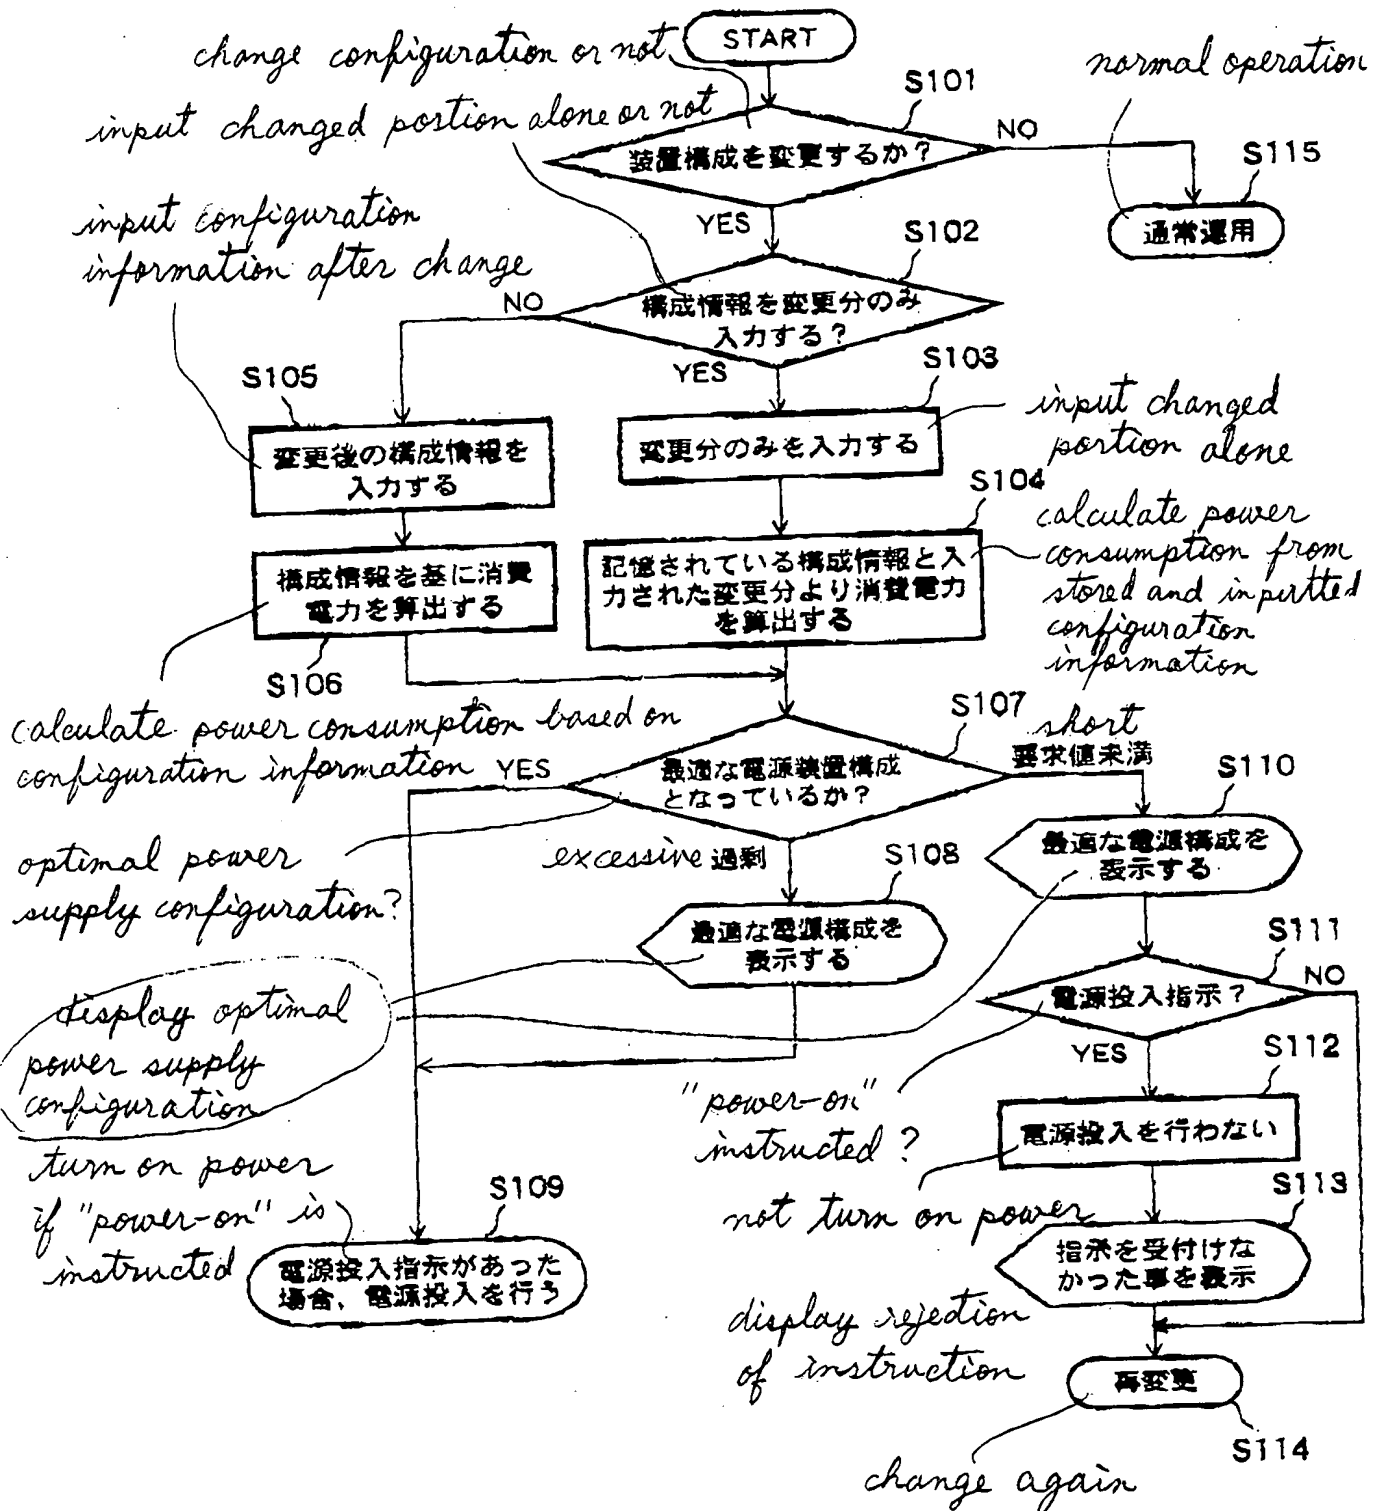 START
change configuration or not
normal operation
S101
input changed portion alone or not
NO
装置構成を変更するか？
S115
YES
通常運用
input configuration
information after change
S102
NO
構成情報を変更分のみ
入力する？
YES
S103
S105
input changed
portion alone
変更後の構成情報を
入力する
変更分のみを入力する
S104
calculate power
consumption from
stored and inputted
configuration
information
構成情報を基に消費
電力を算出する
記憶されている構成情報と入
力された変更分より消費電力
を算出する
S106
calculate power consumption based on
configuration information
S107
short
要求値未満
YES
最適な電源装置構成
となっているか？
S110
optimal power
supply configuration?
excessive 過剰
S108
最適な電源構成を
表示する
最適な電源構成を
表示する
S111
NO
display optimal
power supply
configuration
電源投入指示？
YES
S112
"power-on"
instructed ?
電源投入を行わない
turn on power
if "power-on" is
instructed
S109
not turn on power
S113
電源投入指示があった
場合、電源投入を行う
指示を受付けな
かった事を表示
display rejection
of instruction
再変更
S114
change again